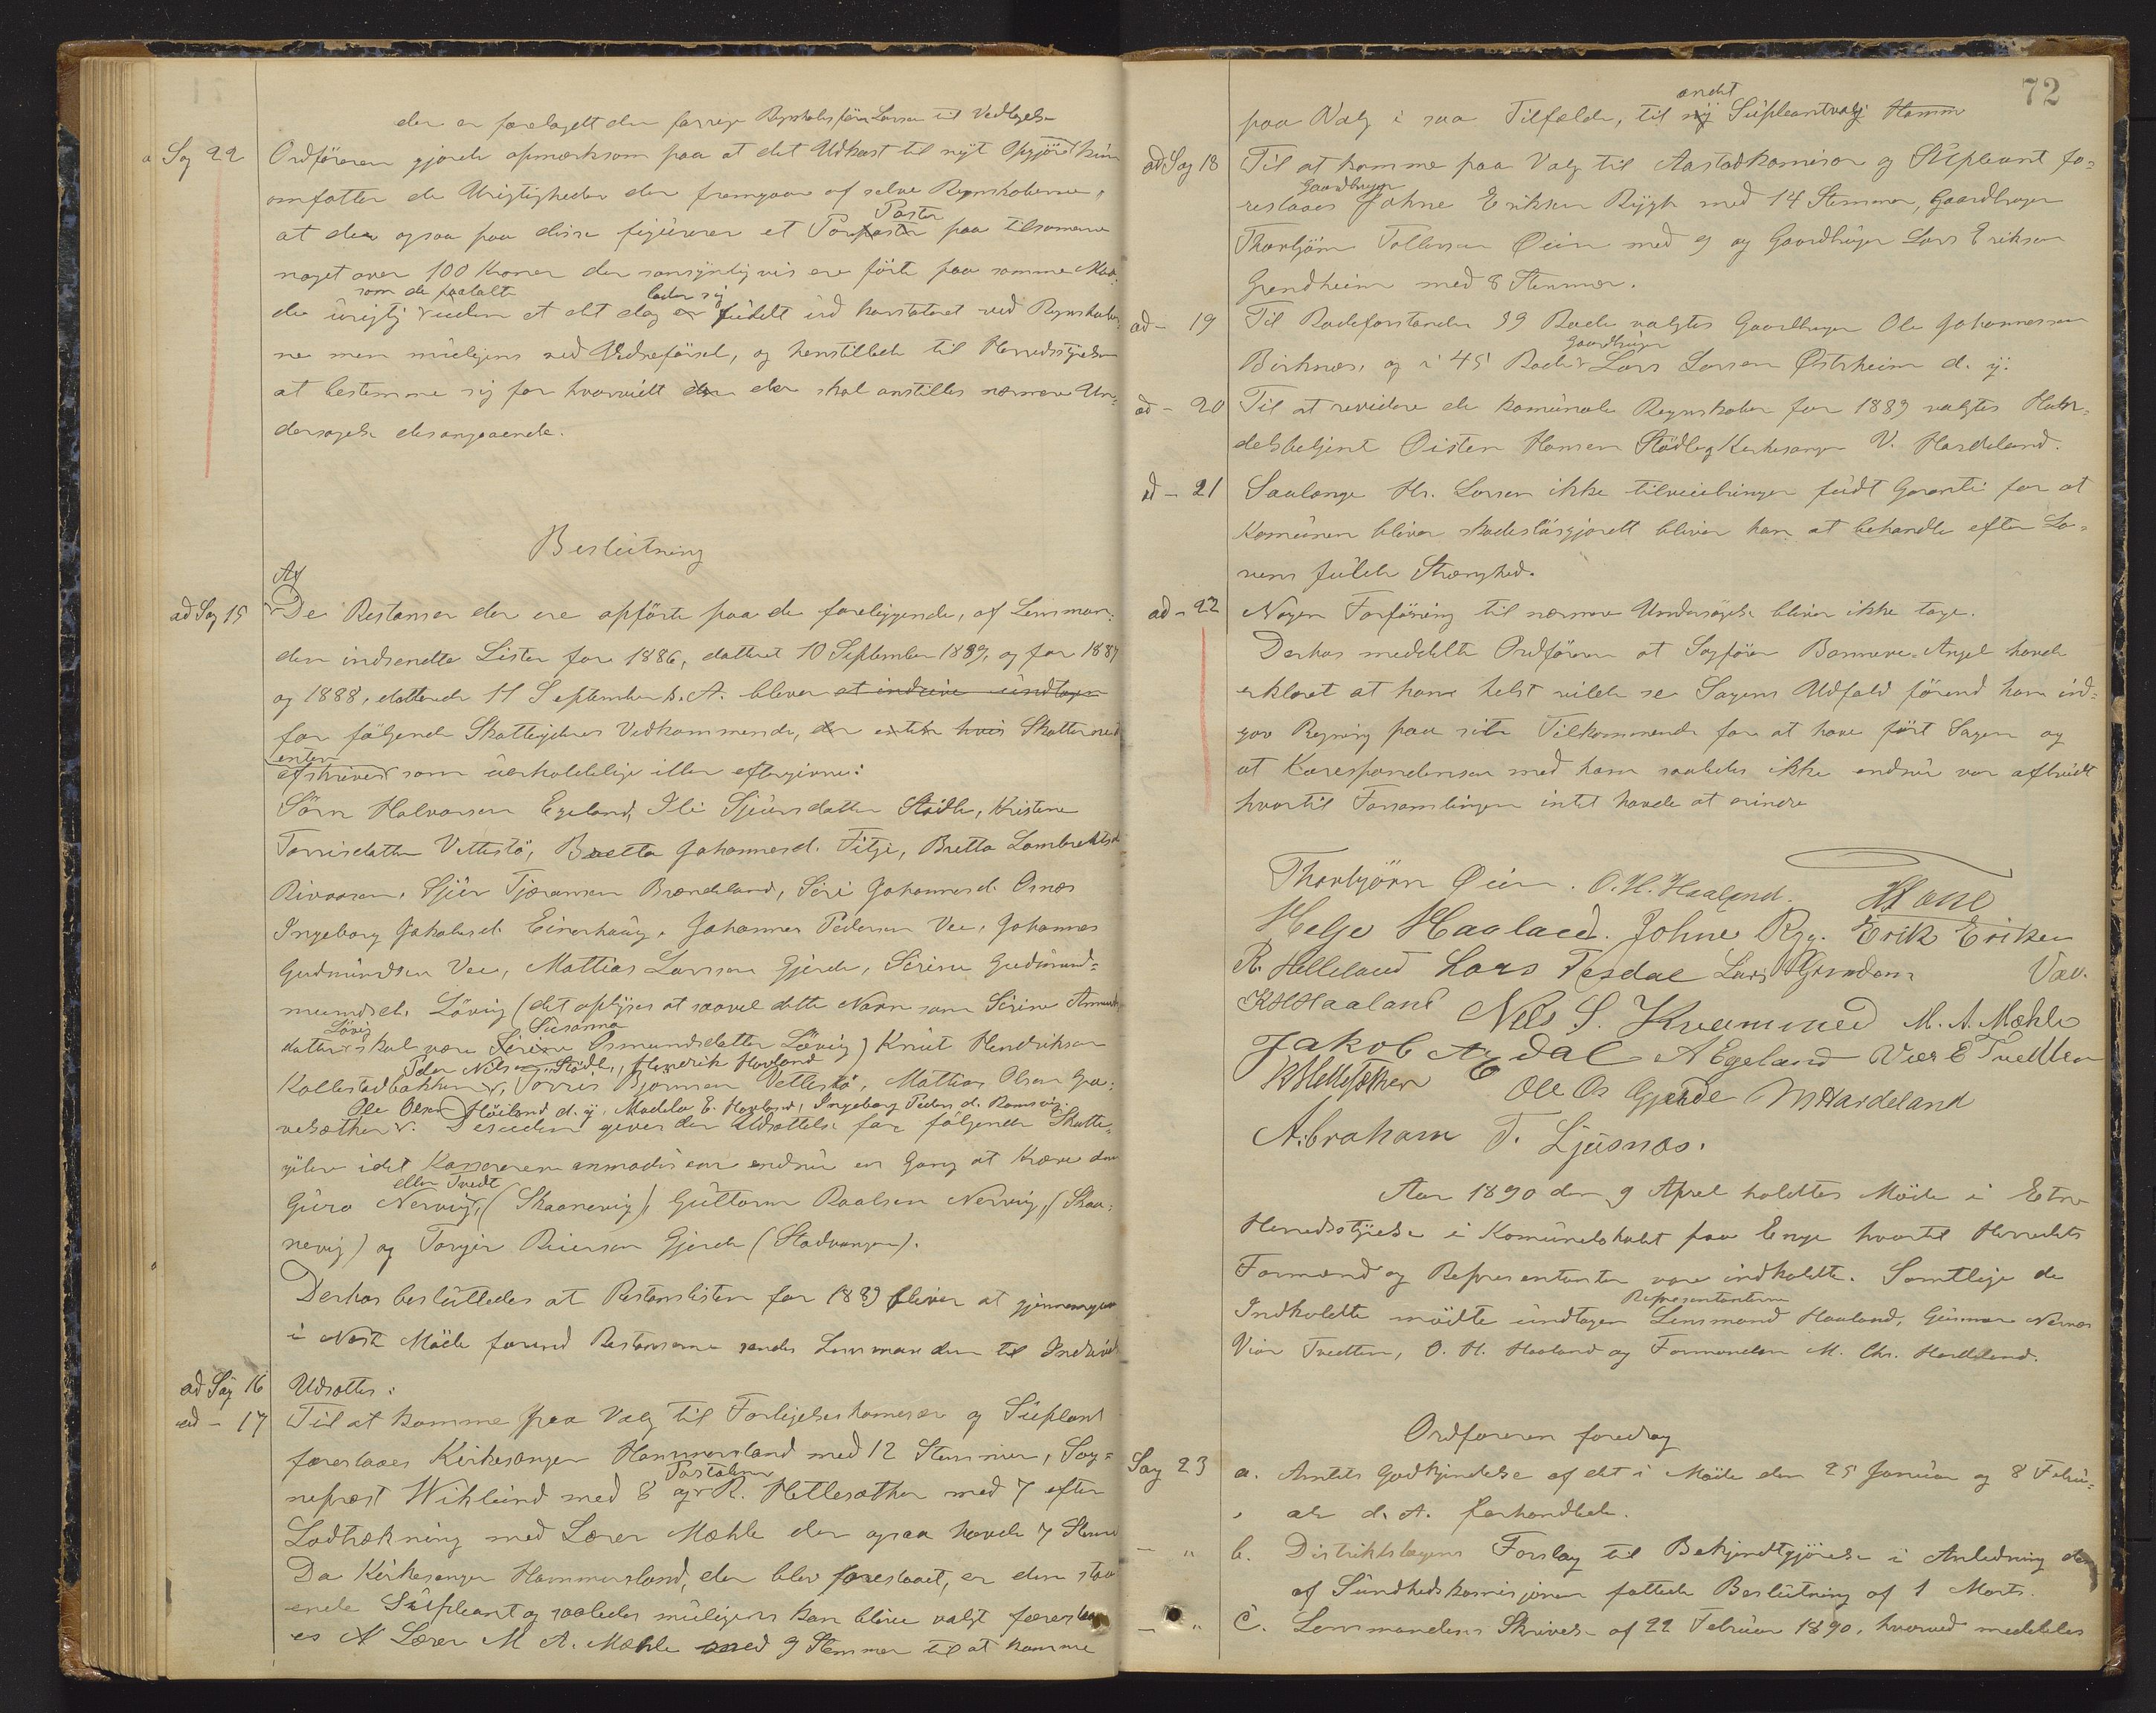 der er forelagdt den forrige Regnskabsförer Larsen til Vedtagelse
a Sag 22 Ordföreren gjorde opmærksom paa at det Udkast til nyt Opgjör kun
omfatter de Urigtigheder der fremgaar af selve Regnskaberne,
at der ogsaa paa disse figurerer et Par Poster paa tilsammen
noget over 100 Kroner der sansynligvis ere förte paa samme Maa-
de urigtig som de paatalte uden at det dog lader sig fuldt ud konstateret ved Regnskaber-
ne men muligens ved Vidneförsel, og henstillede til Herredsstyrelsen
at bestemme sig for hvorvidt der skal anstilles nærmere Un-
dersögelse desangaaende.
Beslutning
ad Sag 15 Af De Restanser der ere opförte paa de foreliggende, af Lensman-
den indsendte Lister for 1886, datteret 10 September 1889, og for 1887
og 1888, datterede 11 September s. A. bliver at inddrive undtagen
for fölgende Skatteyderes Vedkommende, der enten hvis Skatter ned
enten afskrives som uerholdelige eller eftergivne:
Sörn Halvorsen Egeland, Ili Sjursdatter Stödle, Kristene
Torrisdatter Vettestö, Bretta Johannesd. Fitje, Bretta Lambrehtsd
Rivaasen, Sjur Tjæransen Brendeland, Siri Johannesd. Osnes
Ingeborg Jakobsd. Einerhaug, Johannes Pedersen Vee, Johannes
Gudmundsen Vee, Mattias Larsson Gjerde, Serine Gudmund-
mundsd. Lövig (det oplyses at saavel dette Navn som Serine Amunds
datter Lövig skal være Susanna Osmundsdatter Lövig) Knut Hendriksen
Peder Nilsen Stödle, Hendrik Haaland
Kallestadbakken, Torris Bjornsen Vettestö, Mattias Olsen Gra-
Ole Olsen Höiland d. y. Madela E. Haaland, Ingeborg Peders d. Ramsvig
vesæther. Desuden gives der Udsættelse for fölgende Skatte-
ydere idet Kassereren anmodes om endnu en Gang at kræve dem
Guro Nervig eller Tvedt, (Skaanevig) Guttorm Paalsen Nervig, (Skaa-
nevig) og Torger Reiersen Gjerde (Stadvangen).
Derhos besluttedes at Restanslisten for 1889 bliver at gjennemgaa
i Næste Möde forend Restanserne sendes Lensmanden til Inddrivels
ad Sag 16 Udsættes:
ad - 17 Til at komme paa Valg til Forligelseskomisær og Supleant
foreslaaes Kirkesanger Hammersland med 12 Stemmer, Sog-
neprest Wiklund med 8 og Postaabner R. Hettesæther med 7 efter
Lodtrækning med Lærer Mæhle der ogsaa havde 7 Stemmer
Da Kirkesanger Hammersland, der blev foreslaaet, er den staa-
ende Supleant og saaledes muligens kan blive valgt foreslaa-
es Lærer M A. Mæhle med 9 Stemmer til at komme
72
paa Valg i saa Tilfælde, til andet Supleantvalg
ad Sag 18 Til at komme paa Valg til Aastedkomisær og Supleant fo-
reslaaes Gaardbruger Johne Eriksen Rygh med 14 Stemmer, Gaardbruger
Thorbjörn Tollevsen Öien med 9 og Gaardbruger Lars Eriksen
Grendheim med 8 Stemmer.
ad - 19 Til Rodeforstander 39 Rode valgtes Gaardbruger Ole Johannessen
Birknes, og i 45 Rode Gaardbruger Lars Larsen Östrheim d. y.
ad - 20 Til at revidere de komunale Regnskaber for 1889 valgtes Han-
delsbetjent Öisten Hansen Stödle og Kirkesanger V. Hardeland.
ad - 21 Saalænge Hr. Larsen ikke tilveiebringer fuldt Garanti for at
Komunen bliver skadeslösgjordt bliver han at behandle efter Lo-
vens fulde Strænghed.
ad - 22 Nogen Forföining til nærmere Undersögelse bliver ikke tage.
Derhos meddelte Ordföreren at Sagförer Bonnevie Angel havde
erklæret at han helst vilde se Sagens Udfald förend han ind-
gav Regning paa sit Tilkommende for at have fört Sagen og
at Korespondensen med ham saaledes ikke endnu var afbrudt
hvortil Forsamlingen intet havde at erindre
Thorbjörn Öien. O. H. Haaland.
Helge Haaland. Johne Ryg. Erik Eriksen
R. Helleland Lars Tesdal Vad.
K H Haaland Nels S. Kvammen M. A. Mæhle
Jakob A Edal A Egeland Vier E Tvedten
R Hettesæther Ole Os Gjerde M Hardeland
Abraham T. Ljusnes.
Aar 1890 den 9 April holdtes Möde i Etne
Herredsstyrelse i Komunelokalet paa Enge hvortil Herredets
Formænd og Representanter vare indkaldte. Samtlige de
Indkaldte mödte undtagen Representanterne Lensmand Haaland, Gunnar Nernes
Vier Tvedten, O. H. Haaland og Formanden M. Chr. Hardeland.
Ordföreren foredrog
Sag 23 a. Amtets Godkjendelse af det i Möde den 25 Januar og 8 Febru-
ar d. A. forhandlede.
— " b. Distriktslægens Forslag til Bekjendtgjörelse i Anledning den
af Sundhedskomisjonen fattede Beslutning af 1 Marts.
— " c. Lensmandens Skrivelse af 22 Februar 1890, hvorved meddeles